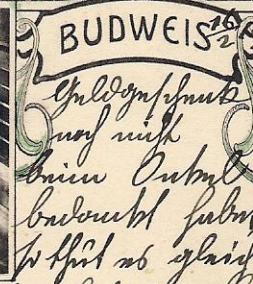 BUDWEIS 16/2
Geldgeschenk
noch nicht
beim Onkel
bedankt habe,
so thut es gleich